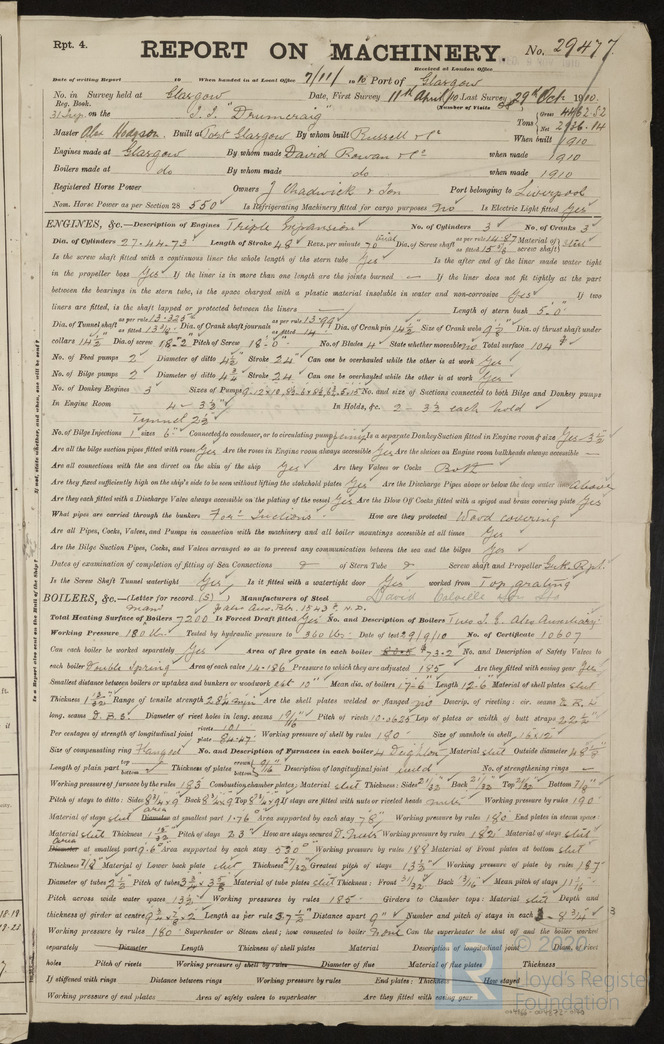 Rpt. 4.
REPORT ON MACHINERY.
No. 29477
Received at London Office
Date of writing Report 10 When handed in at Local Office 7/11/ 10 Port of Glasgow
No. in Survey held at Glasgow Date, First Survey 11th April/10 Last Survey 29th Oct. 1910.
Reg. Book. (Number of Visits
on the S.S. "Drumcraig" Tons Gross 4482.52 Net 2136.14
Master Alex Hodgson. Built at Port Glasgow By whom built Russell & Co When built 1910
Engines made at Glasgow By whom made David Rowan & Co when made 1910
Boilers made at do By whom made do when made 1910
Registered Horse Power Owners J Chadwick & Son Port belonging to Liverpool
Nom. Horse Power as per Section 28 550 Is Refrigerating Machinery fitted for cargo purposes No Is Electric Light fitted Yes
ENGINES, &c.—Description of Engines Triple Expansion No. of Cylinders 3 No. of Cranks 3
Dia. of Cylinders 27.44.73 Length of Stroke 48 Revs. per minute 70 Dia. of Screw shaft as per rule 14.87 as fitted Material of screw shaft steel
Is the screw shaft fitted with a continuous liner the whole length of the stern tube Yes Is the after end of the liner made water tight
in the propeller boss Yes If the liner is in more than one length are the joints burned — If the liner does not fit tightly at the part
between the bearings in the stern tube, is the space charged with a plastic material insoluble in water and non-corrosive Yes If two
liners are fitted, is the shaft lapped or protected between the liners — Length of stern bush 5'-0"
Dia. of Tunnel shaft as per rule 13.323 as fitted 13 3/4 Dia. of Crank shaft journals as per rule 13.99 as fitted 14 Dia. of Crank pin 14 1/2 Size of Crank webs 9 1/8 Dia. of thrust shaft under
collars 14 1/2 Dia. of screw 18'-2" Pitch of Screw 18'-0" No. of Blades 4 State whether moveable No Total surface 104
No. of Feed pumps 2 Diameter of ditto 4 1/2 Stroke 24" Can one be overhauled while the other is at work Yes
No. of Bilge pumps 2 Diameter of ditto 4 3/4 Stroke 24 Can one be overhauled while the other is at work Yes
No. of Donkey Engines 3 Sizes of Pumps No. and size of Suctions connected to both Bilge and Donkey pumps
In Engine Room 4 - 3 1/2" In Holds, &c. 2 - 3 1/2 each hold
Tunnel 2 1/2
No. of Bilge Injections 1 sizes 6" Connected to condenser, or to circulating pump Is a separate Donkey Suction fitted in Engine room & size Yes 3 1/2
Are all the bilge suction pipes fitted with roses Yes Are the roses in Engine room always accessible Yes Are the sluices on Engine room bulkheads always accessible —
Are all connections with the sea direct on the skin of the ship Yes Are they Valves or Cocks Both
Are they fixed sufficiently high on the ship's side to be seen without lifting the stokehold plates Yes Are the Discharge Pipes above or below the deep water line Above
Are they each fitted with a Discharge Valve always accessible on the plating of the vessel Yes Are the Blow Off Cocks fitted with a spigot and brass covering plate Yes
What pipes are carried through the bunkers Ford Suctions How are they protected Wood covering
Are all Pipes, Cocks, Valves, and Pumps in connection with the machinery and all boiler mountings accessible at all times Yes
Are the Bilge Suction Pipes, Cocks, and Valves arranged so as to prevent any communication between the sea and the bilges Yes
Dates of examination of completion of fitting of Sea Connections of Stern Tube Screw shaft and Propeller
Is the Screw Shaft Tunnel watertight Yes Is it fitted with a watertight door Yes worked from Top grating
BOILERS, &c.—(Letter for record (S) Manufacturers of Steel David Colville & Son Ltd
Total Heating Surface of Boilers 7200 Is Forced Draft fitted Yes No. and Description of Boilers Two S.E. Also Auxiliary
Working Pressure 180 lbs Tested by hydraulic pressure to 360 lbs Date of test 29/9/10 No. of Certificate 10607
Can each boiler be worked separately Yes Area of fire grate in each boiler 73.2 No. and Description of Safety Valves to
each boiler Double Spring Area of each valve 14.186 Pressure to which they are adjusted 185 Are they fitted with easing gear Yes
Smallest distance between boilers or uptakes and bunkers or woodwork abt 10" Mean dia. of boilers 17'-6" Length 12'-6 Material of shell plates steel
Thickness Range of tensile strength Are the shell plates welded or flanged No Descrip. of riveting: cir. seams
long. seams D.B.S. Diameter of rivet holes in long. seams 1 9/16 Pitch of rivets 10.0625 Lap of plates or width of butt straps
Per centages of strength of longitudinal joint rivets 101 plate 84.47 Working pressure of shell by rules 190 Size of manhole in shell 16x12
Size of compensating ring Flanged No. and Description of Furnaces in each boiler 4 Deighton Material steel Outside diameter
Length of plain part top bottom Thickness of plates crown bottom 9/16 Description of longitudinal joint weld No. of strengthening rings —
Working pressure of furnace by the rules 183 Combustion chamber plates: Material steel Thickness: Sides 21/32 Back 21/32 Top 21/32 Bottom 7/8"
Pitch of stays to ditto: Sides Back Top If stays are fitted with nuts or riveted heads nuts Working pressure by rules 190
Material of stays steel area Diameter at smallest part 1.76 Area supported by each stay 78 Working pressure by rules 180 End plates in steam space:
Material steel Thickness Pitch of stays 23 How are stays secured D. Nuts Working pressure by rules 182 Material of stays steel
area Diameter at smallest part Area supported by each stay 530 Working pressure by rules 188 Material of Front plates at bottom steel
Thickness 7/8 Material of Lower back plate steel Thickness 27/32 Greatest pitch of stays 13 1/2 Working pressure of plate by rules 187
Diameter of tubes 2 1/2 Pitch of tubes Material of tube plates steel Thickness: Front 31/32 Back 13/16 Mean pitch of stays
Pitch across wide water spaces 13 1/2 Working pressures by rules 185 Girders to Chamber tops: Material steel Depth and
thickness of girder at centre Length as per rule Distance apart 9" Number and pitch of stays in each 3 - 8 3/4
Working pressure by rules 180 Superheater or Steam chest; how connected to boiler None Can the superheater be shut off and the boiler worked
separately Diameter Length Thickness of shell plates Material Description of longitudinal joint Diam. of rivet
holes Pitch of rivets Working pressure of shell by rules Diameter of flue Material of flue plates Thickness
If stiffened with rings Distance between rings Working pressure by rules End plates: Thickness How stayed
Working pressure of end plates Area of safety valves to superheater Are they fitted with easing gear
© 2020
LR
Lloyd's Register
Foundation